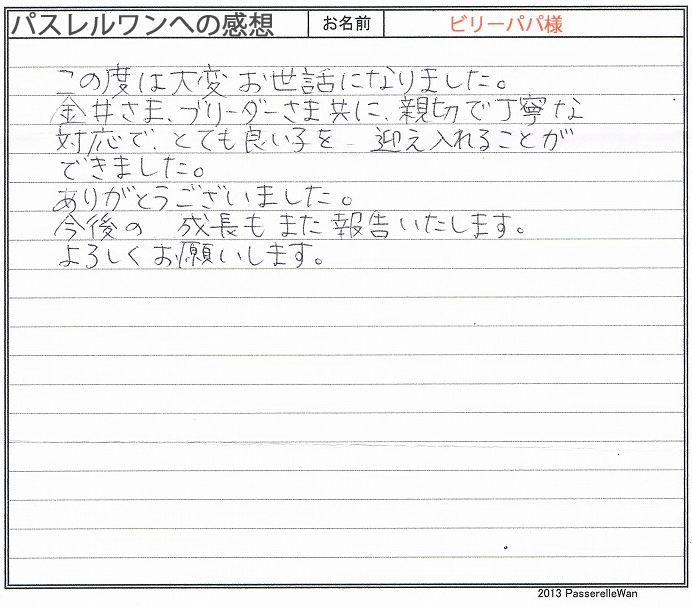 パスレルワンへの感想 お名前 ビリーパパ様
この度は大変 お世話になりました。
金井さま、ブリーダーさま共に、親切で丁寧な
対応で、とても良い子を 迎え入れることが
できました。
ありがとうございました。
今後の 成長もまた 報告いたします。
よろしくお願いします。
2013 PasserelleWan